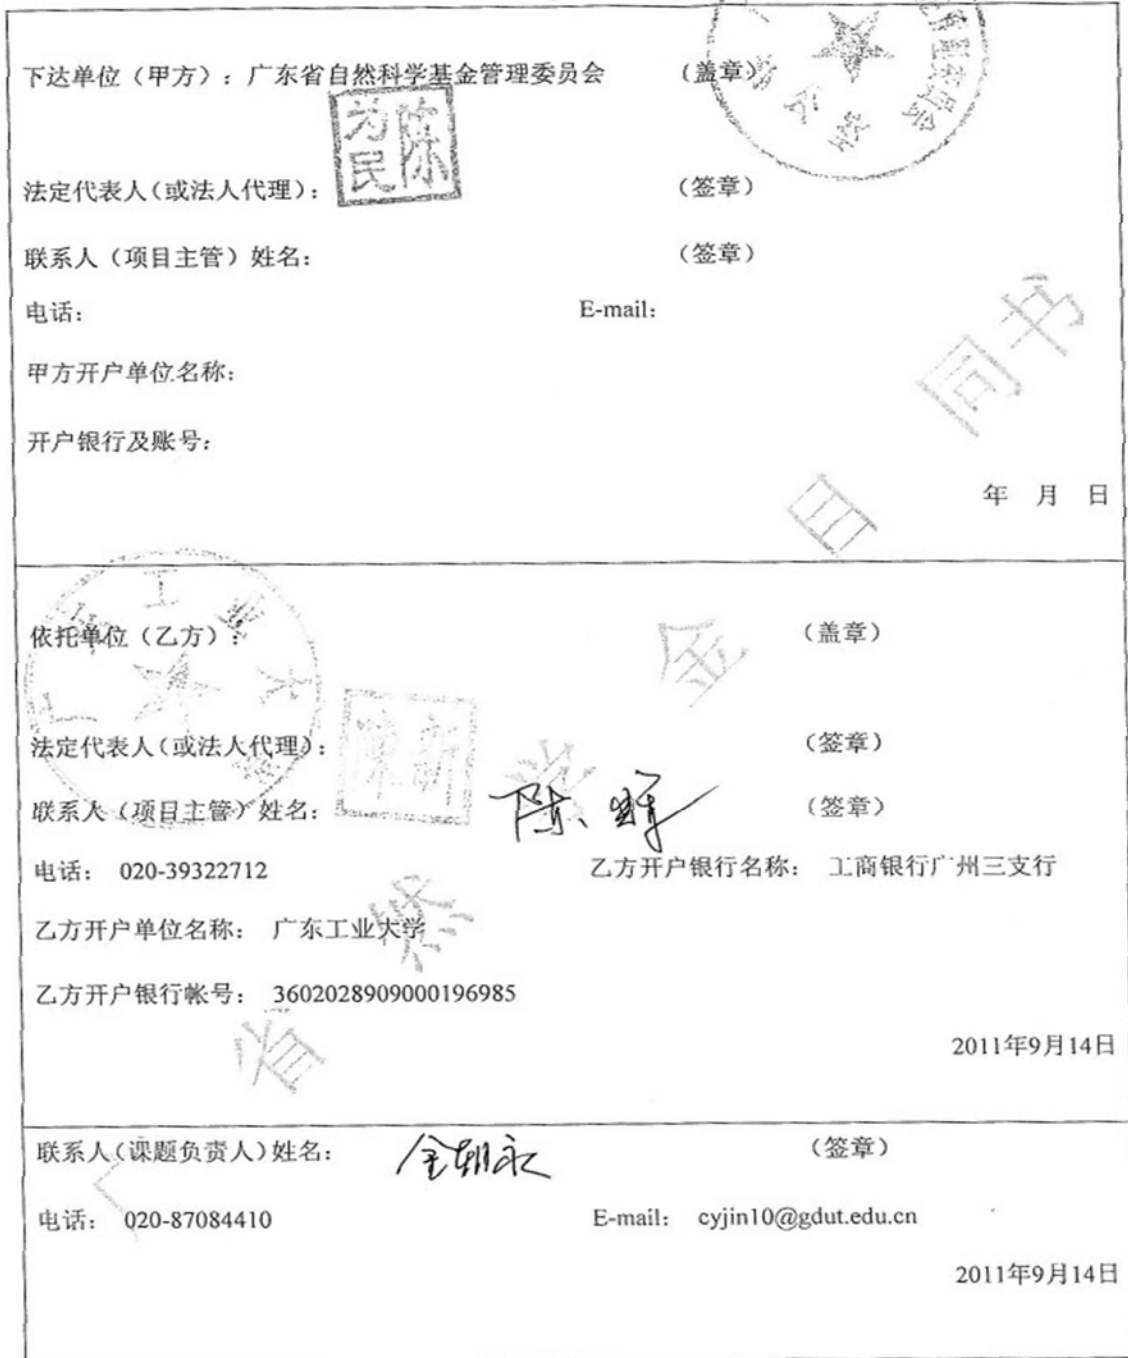 下达单位（甲方）：广东省自然科学基金管理委员会 （盖章）
陈为民
法定代表人（或法人代理）： （签章）
联系人（项目主管）姓名： （签章）
电话： E-mail：
甲方开户单位名称：
开户银行及账号：
年 月 日
依托单位（乙方）： （盖章）
广东工业大学
法定代表人（或法人代理）： （签章）
陈新
联系人（项目主管）姓名： 陈 （签章）
电话： 020-39322712 乙方开户银行名称： 工商银行广州三支行
乙方开户单位名称： 广东工业大学
乙方开户银行帐号： 3602028909000196985
2011年9月14日
联系人（课题负责人）姓名： 金朝永 （签章）
电话： 020-87084410 E-mail： cyjin10@gdut.edu.cn
2011年9月14日
广 省 然 学 金 目 同 书